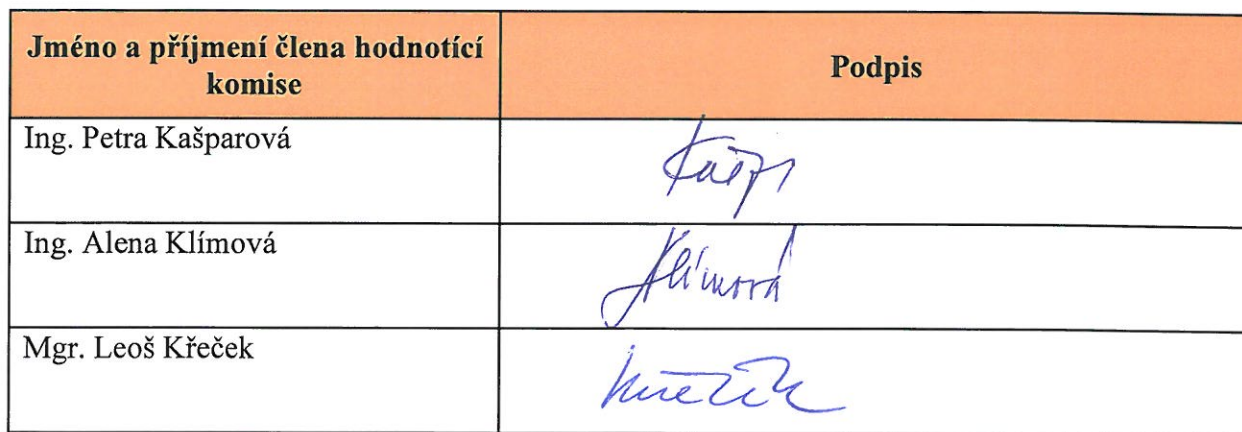 Jméno a příjmení člena hodnotící
komise
Podpis
Ing. Petra Kašparová
Ing. Alena Klímová
Klímová
Mgr. Leoš Křeček